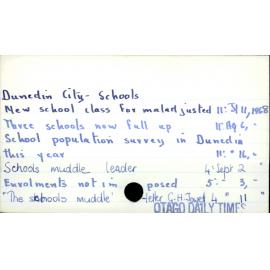 Dunedin City - Schools
New school class for maladjusted 11: Jl 11, 1968
Three schools now full up 11: Ag 6, "
School population survey in Dunedin
this year 11: " 16, "
Schools muddle leader 4: Sepr 2 "
Enrolments not im posed 5: " 3, "
"The schools muddle" -letter G.H. 4 " 11 "
OTAGO DAILY TIMES